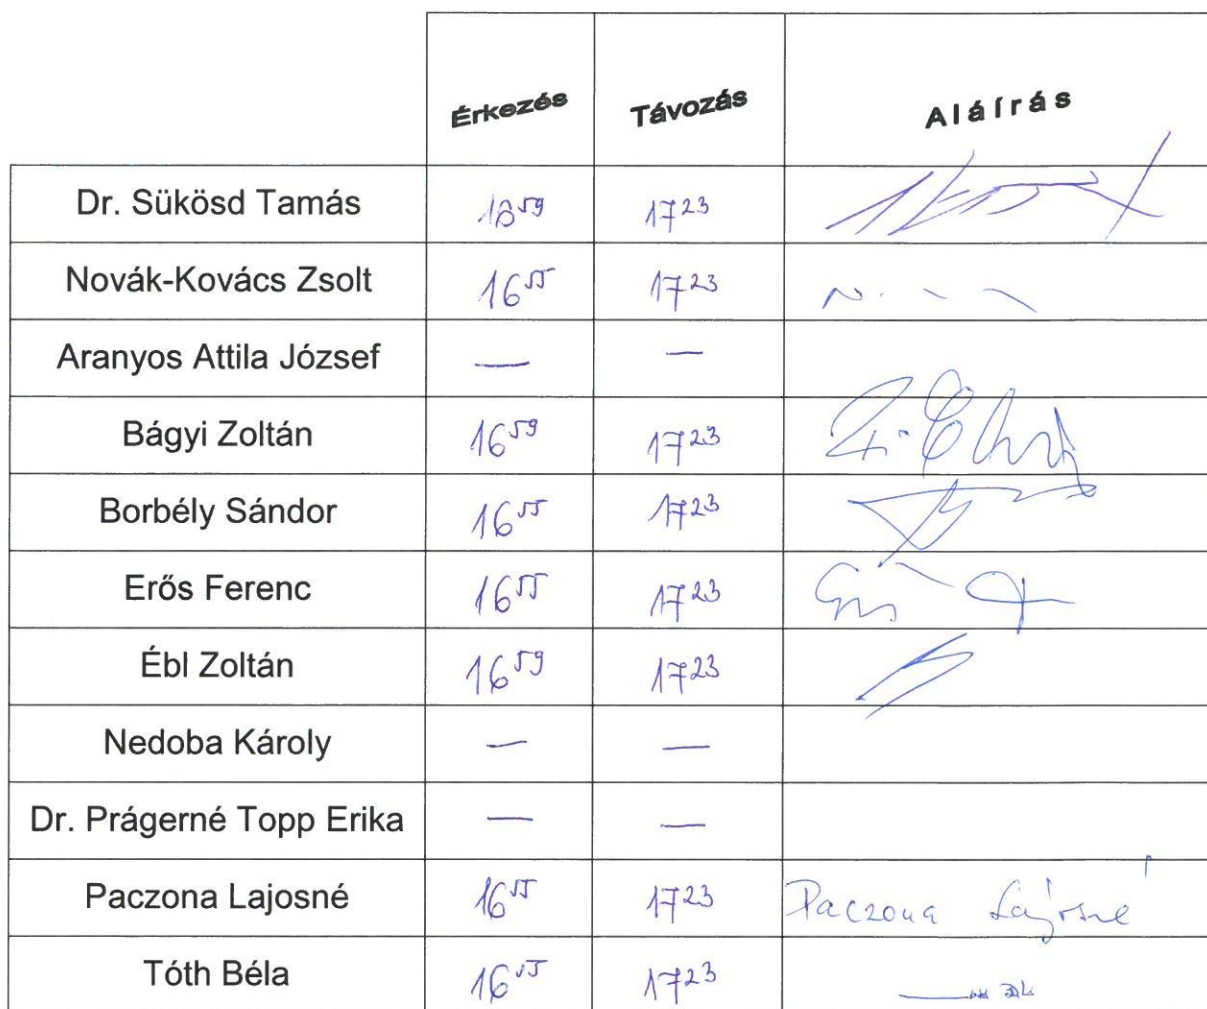 Érkezés Távozás Aláírás
Dr. Sükösd Tamás 16⁵⁹ 17²³
Novák-Kovács Zsolt 16⁵⁵ 17²³
Aranyos Attila József — —
Bágyi Zoltán 16⁵⁹ 17²³
Borbély Sándor 16⁵⁵ 17²³
Erős Ferenc 16⁵⁵ 17²³
Ébl Zoltán 16⁵⁹ 17²³
Nedoba Károly — —
Dr. Prágerné Topp Erika — —
Paczona Lajosné 16⁵⁵ 17²³ Paczona Lajosné
Tóth Béla 16⁵⁵ 17²³